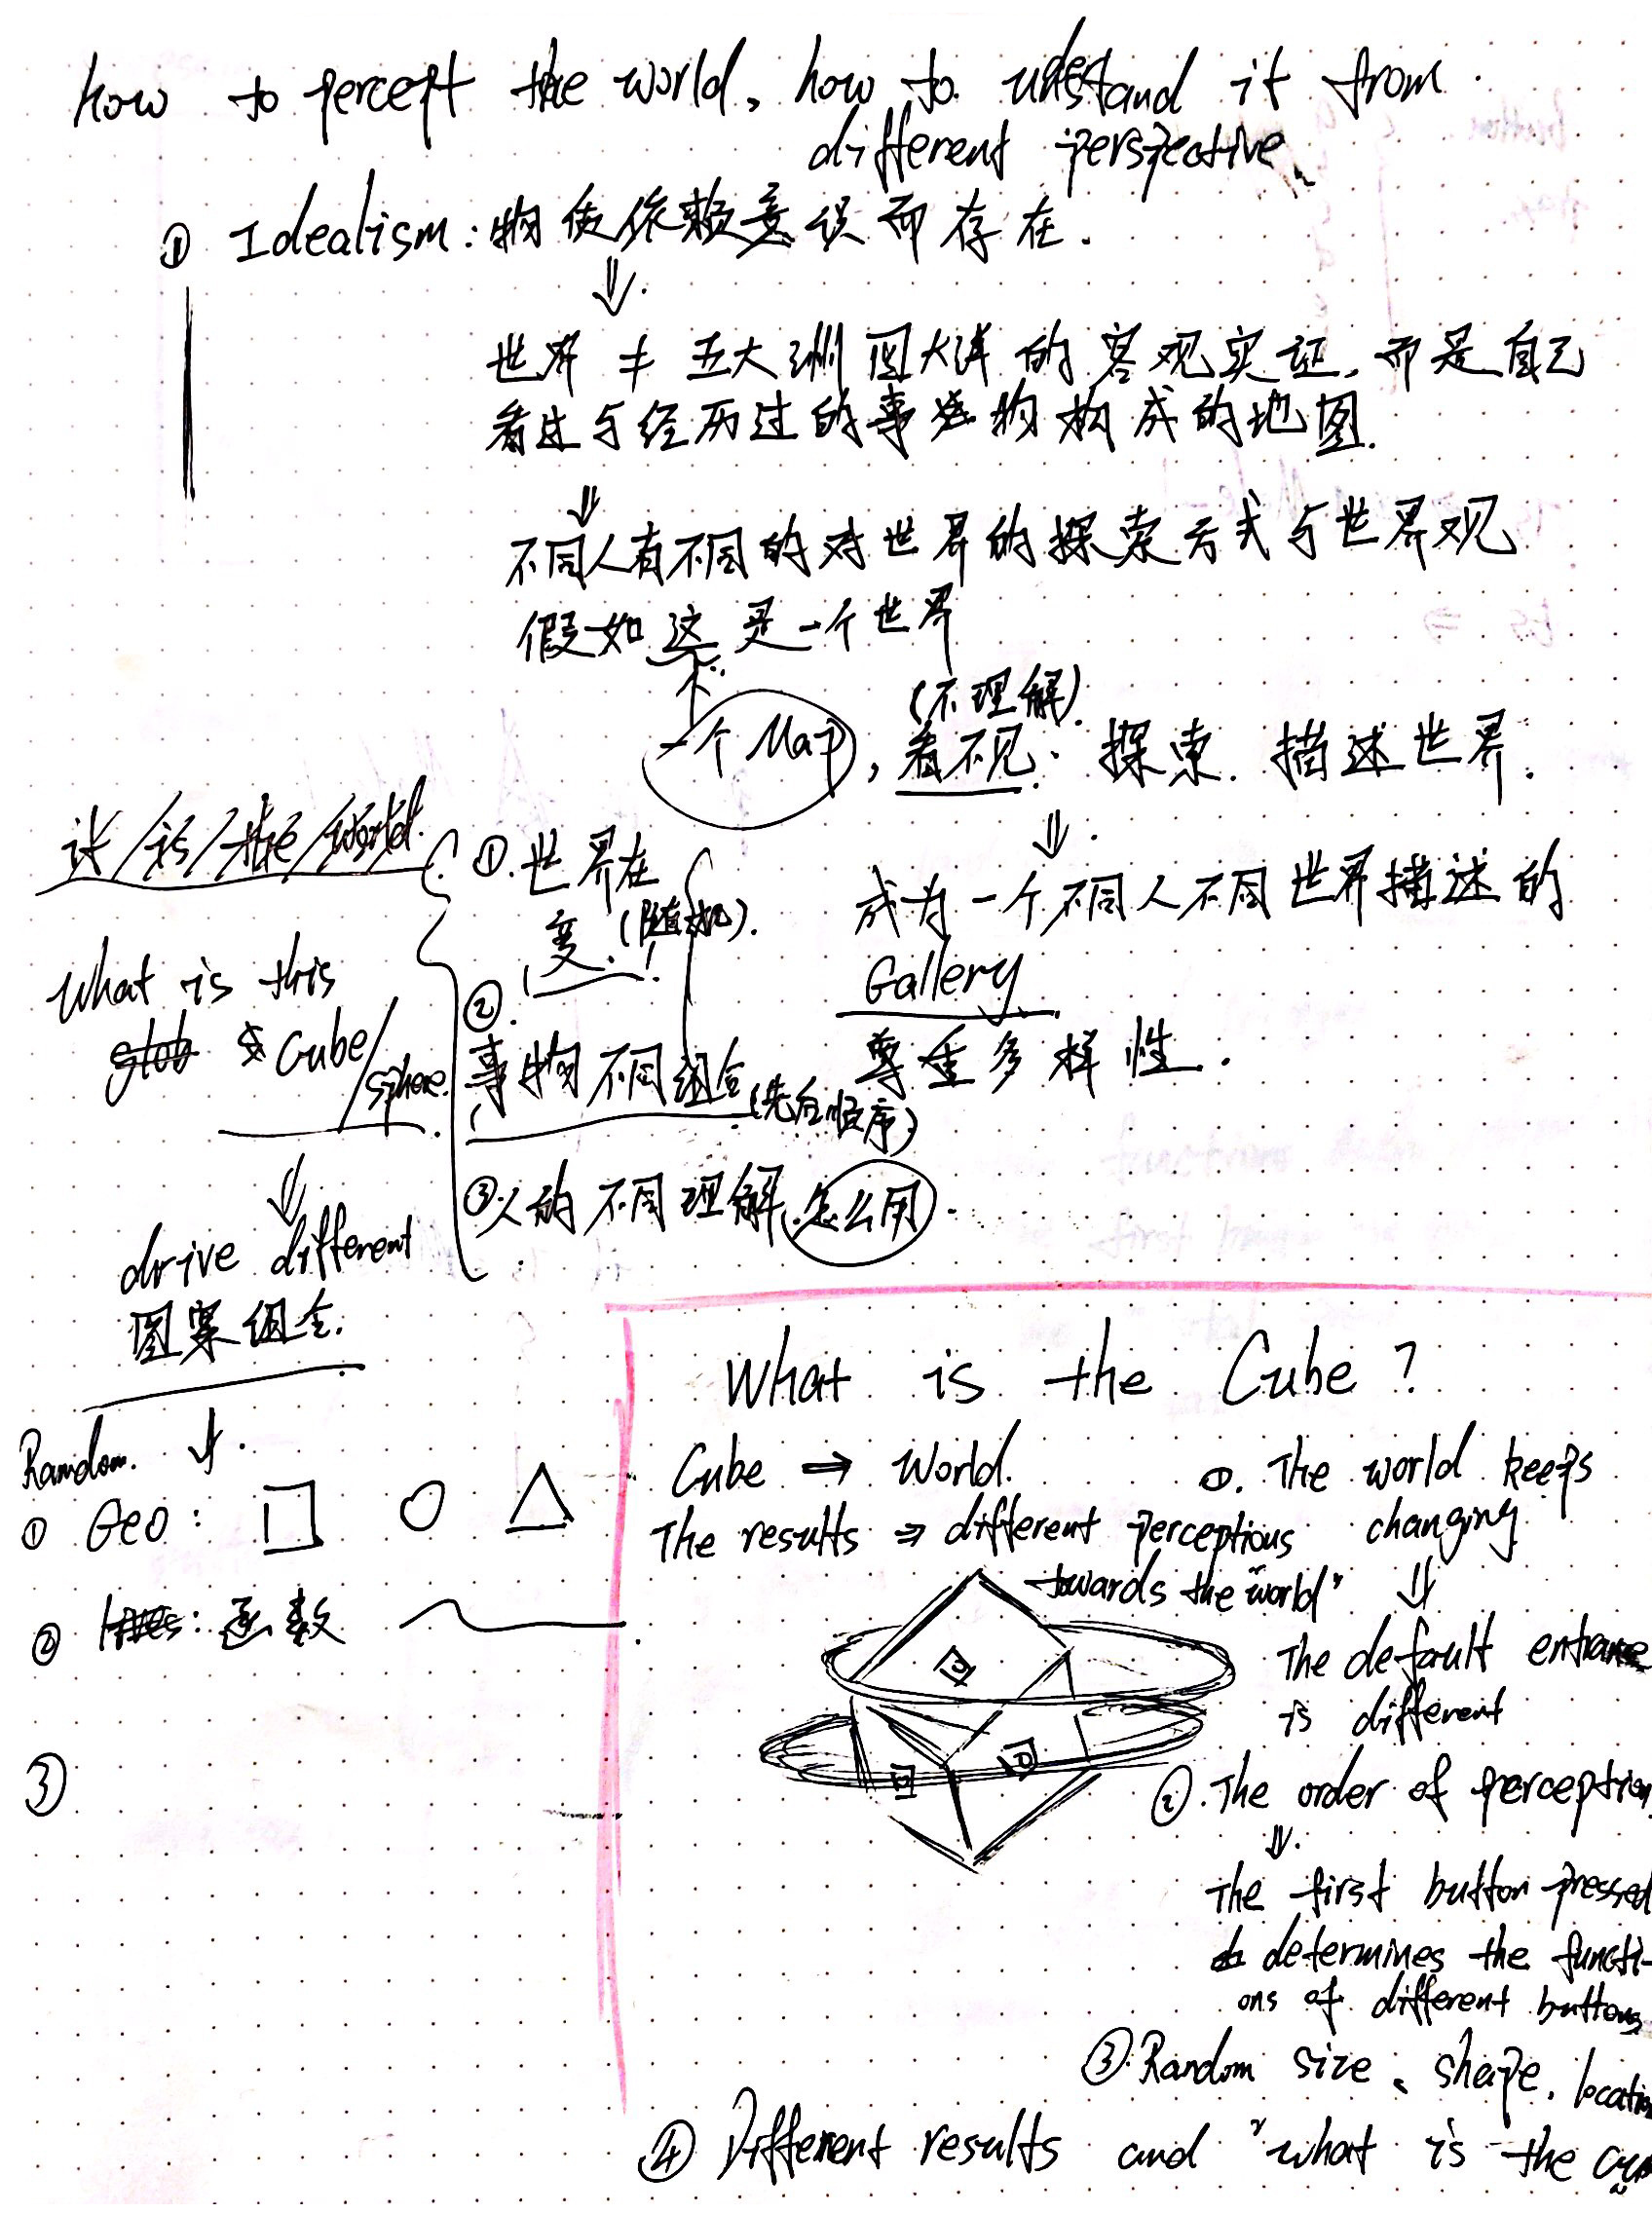 how to percept the world, how to understand it from
different perspective
① Idealism: 物质依赖意识而存在.
⇓
世界 ≠ 五大洲四大洋的客观实证, 而是自己
看过与经历过的事物构成的地图.
⇓
不同人有不同的对世界的探索方式与世界观
假如这是一个世界
↑
一个 Map, 看不见. 探索. 描述世界.
(不理解)
⇓
成为一个不同人不同世界描述的
Gallery
尊重多样性.
/is/the/world.
① 世界在
变.(随机).
②.
事物不同组合(先后顺序)
③ 人的不同理解. 怎么用.
What is this
Cube/
sphere.
⇓
drive different
图案组合.
↓
Random.
① Geo: □ ○ △
② 函数
③
What is the Cube?
Cube ⇒ World.
The results ⇒ different perceptions
towards the "world"
①. The world keeps
changing
⇓
The default entrance
is different
②. The order of perception
⇓.
The first button pressed
determines the functi-
ons of different buttons
③. Random size、shape. location
④ Different results and "what is the cube